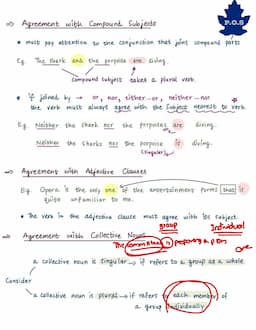 P.O.S
⇒ Agreement with Compound Subjects
• must pay attention to the conjunction that joins compound parts
Eg. The shark and the porpoise are diving.
compound subject takes a plural verb.
• If joined by → or, nor, either-or, neither-nor *
the verb must always agree with the subject nearest to verb
Eg. Neither the shark nor the porpoises are diving.
Neither the sharks nor the porpoise is diving.
(singular)
⇒ Agreement with Adjective Clauses
Eg. Opera is the only one of the entertainment forms that is
quite unfamiliar to me.
• The verb in the adjective clause must agree with its subject.
group Individual
⇒ Agreement with Collective Nouns
The committee is preparing a plan
one
a collective noun is singular → if refers to a group as a whole
Consider
a collective noun is plural → if refers to each member of
a group individually